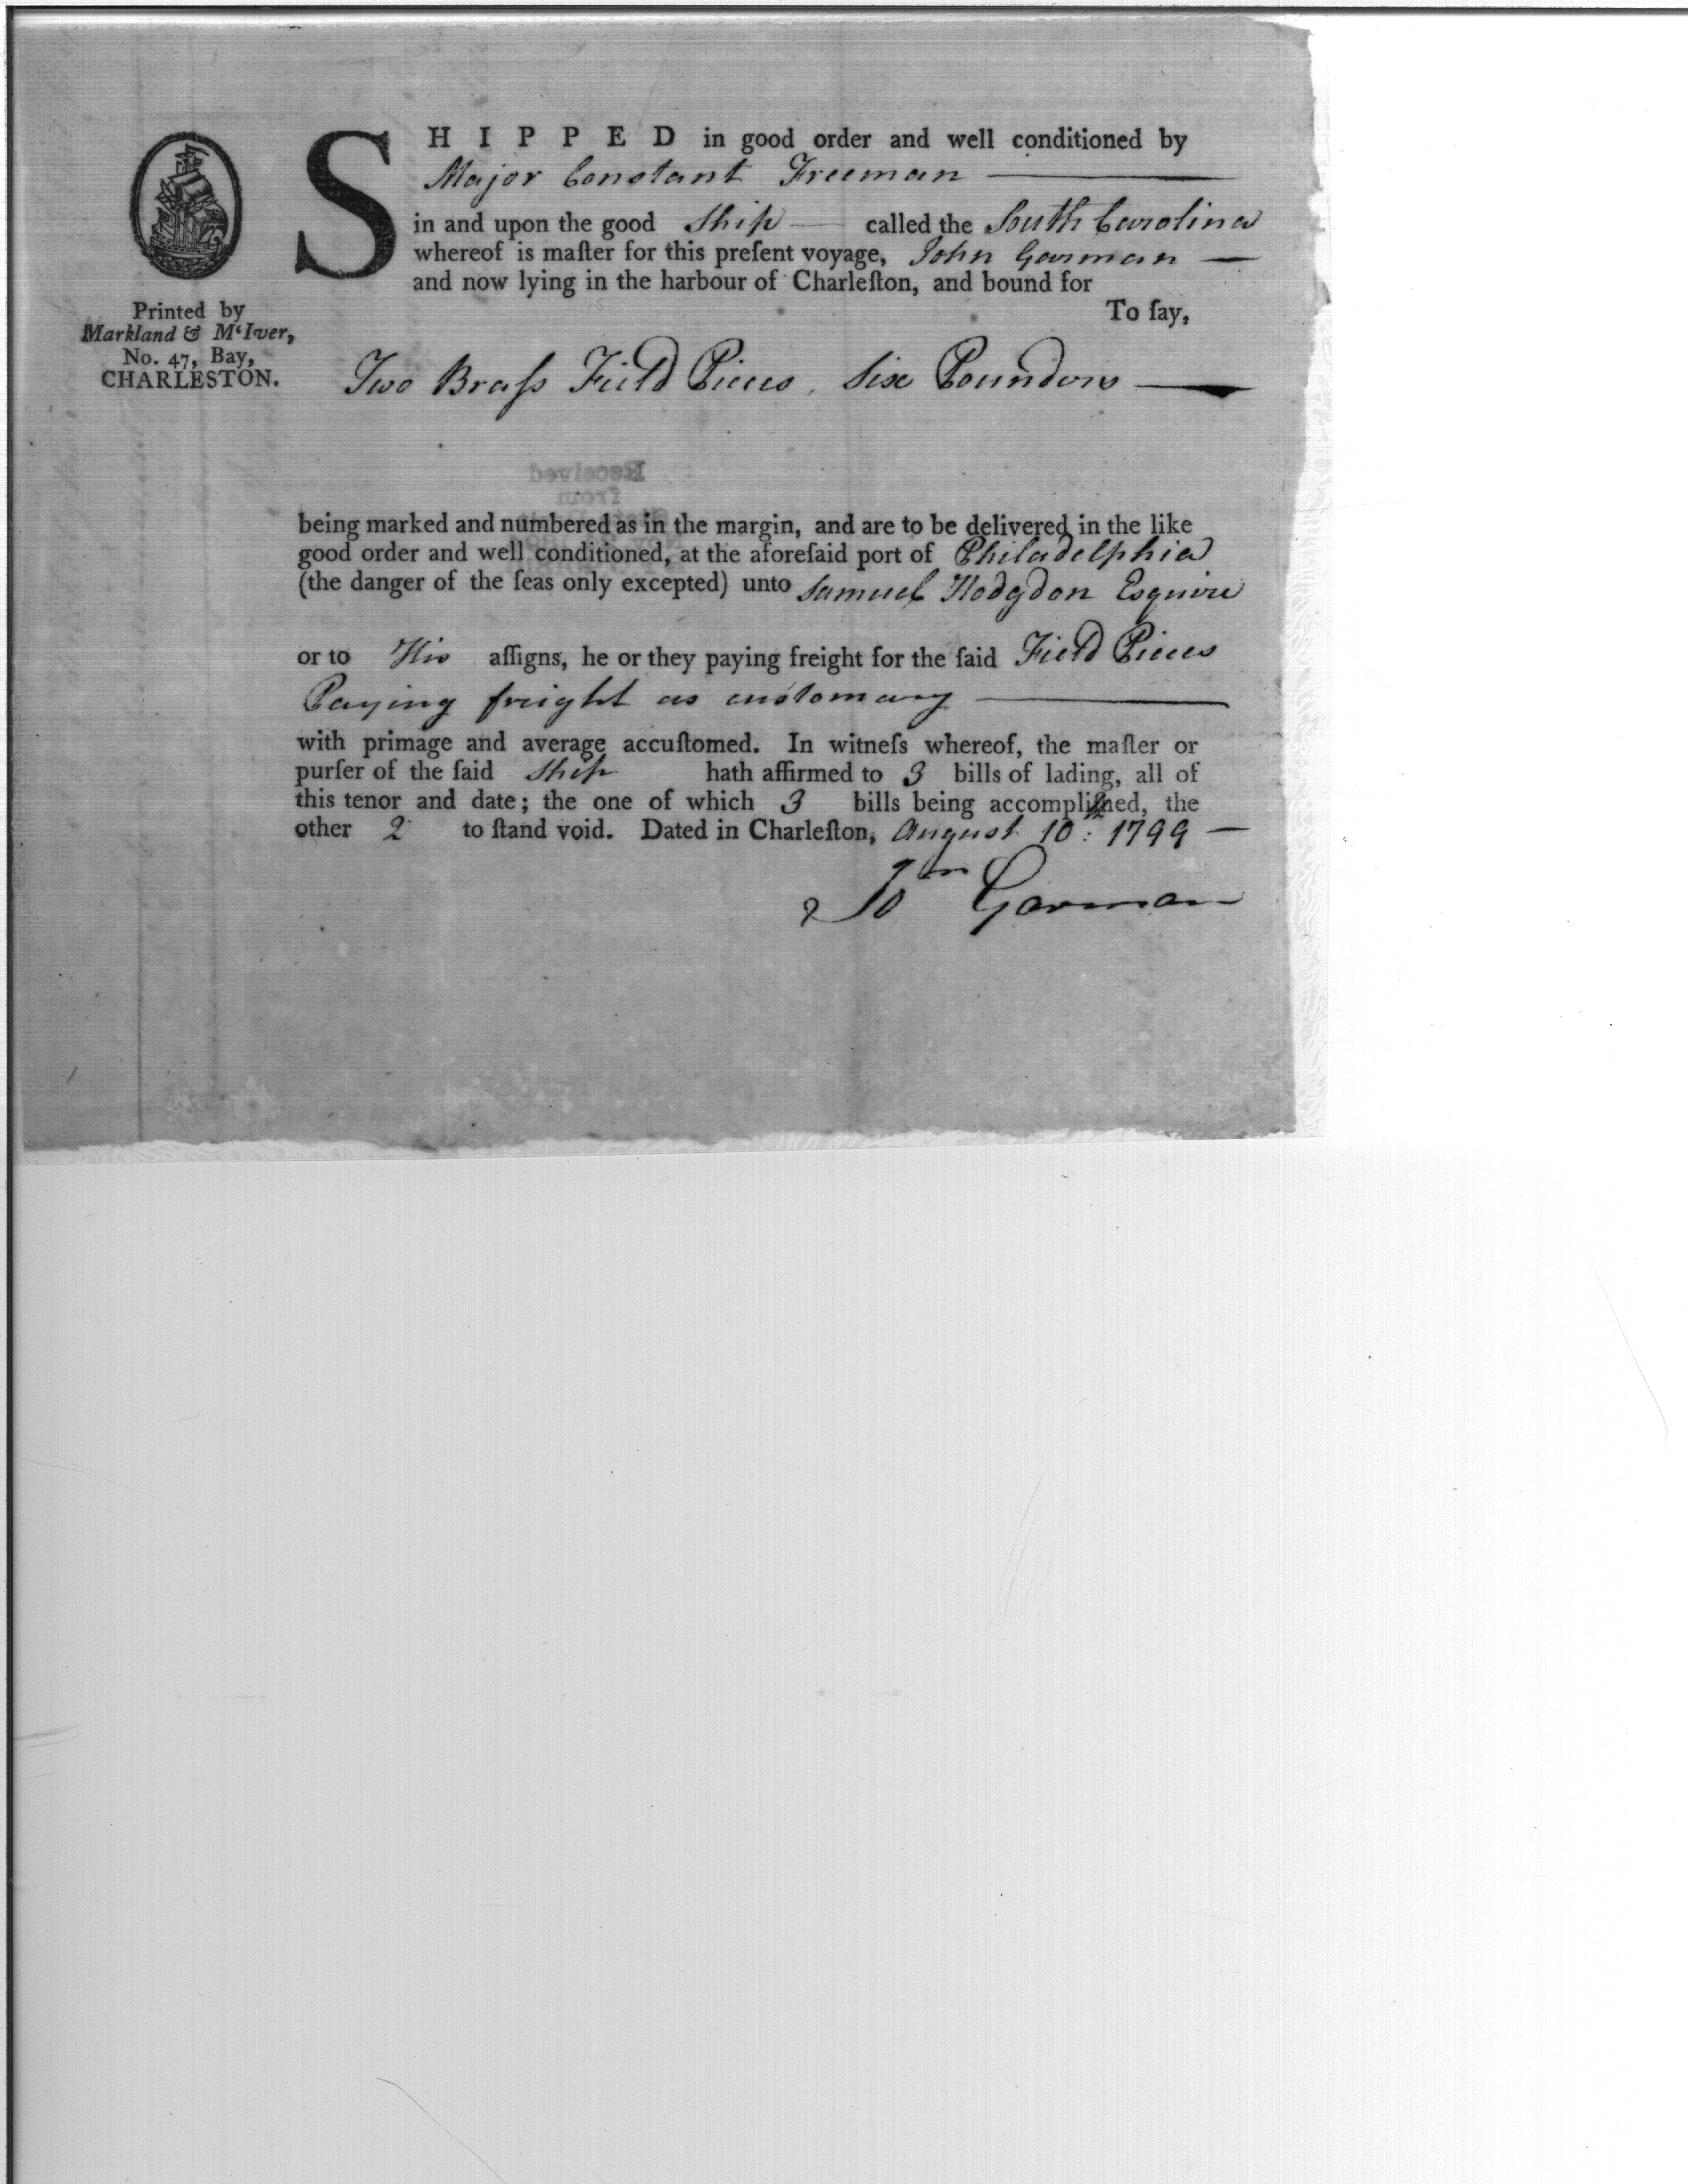 SHIPPED in good order and well conditioned by
Major Constant Freeman
in and upon the good Ship called the South Carolina
whereof is maſter for this preſent voyage, John Garman
and now lying in the harbour of Charleſton, and bound for
To ſay,
Printed by
Markland & M'Iver,
No. 47, Bay,
CHARLESTON.
Two Braſs Field Pieces, Six Pounders
Received
from
being marked and numbered as in the margin, and are to be delivered in the like
good order and well conditioned, at the aforeſaid port of Philadelphia
(the danger of the ſeas only excepted) unto Samuel Hodgdon Esquire
or to His aſſigns, he or they paying freight for the ſaid Field Pieces
Paying freight as customary
with primage and average accuſtomed. In witneſs whereof, the maſter or
purſer of the ſaid Ship hath affirmed to 3 bills of lading, all of
this tenor and date; the one of which 3 bills being accompliſhed, the
other 2 to ſtand void. Dated in Charleſton, August 10th: 1799
Jon Garman